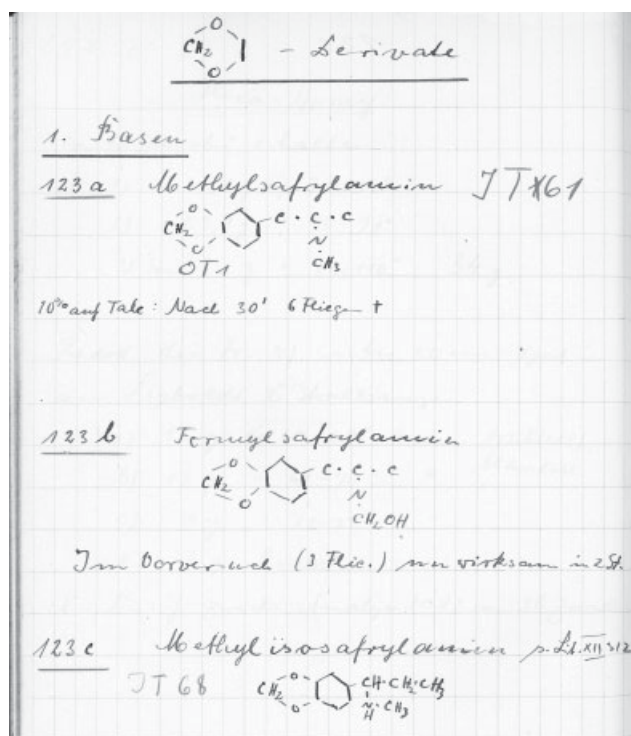 O CH2 O - Derivate
1. Basen
123a Methylsafrylamin JT 61
O CH2 O C · C · C
N
CH3
OT1
10% auf Talk: Nach 30' 6 Fliegen +
123b Formylsafrylamin
O CH2 O C · C · C
N
CH2OH
Im Vorversuch (3 Flie.) unwirksam in 2 St.
123c Methylisosafrylamin s. Lit. XII 312
JT 68 CH2 O O CH·CH2·CH3
N·CH3
H